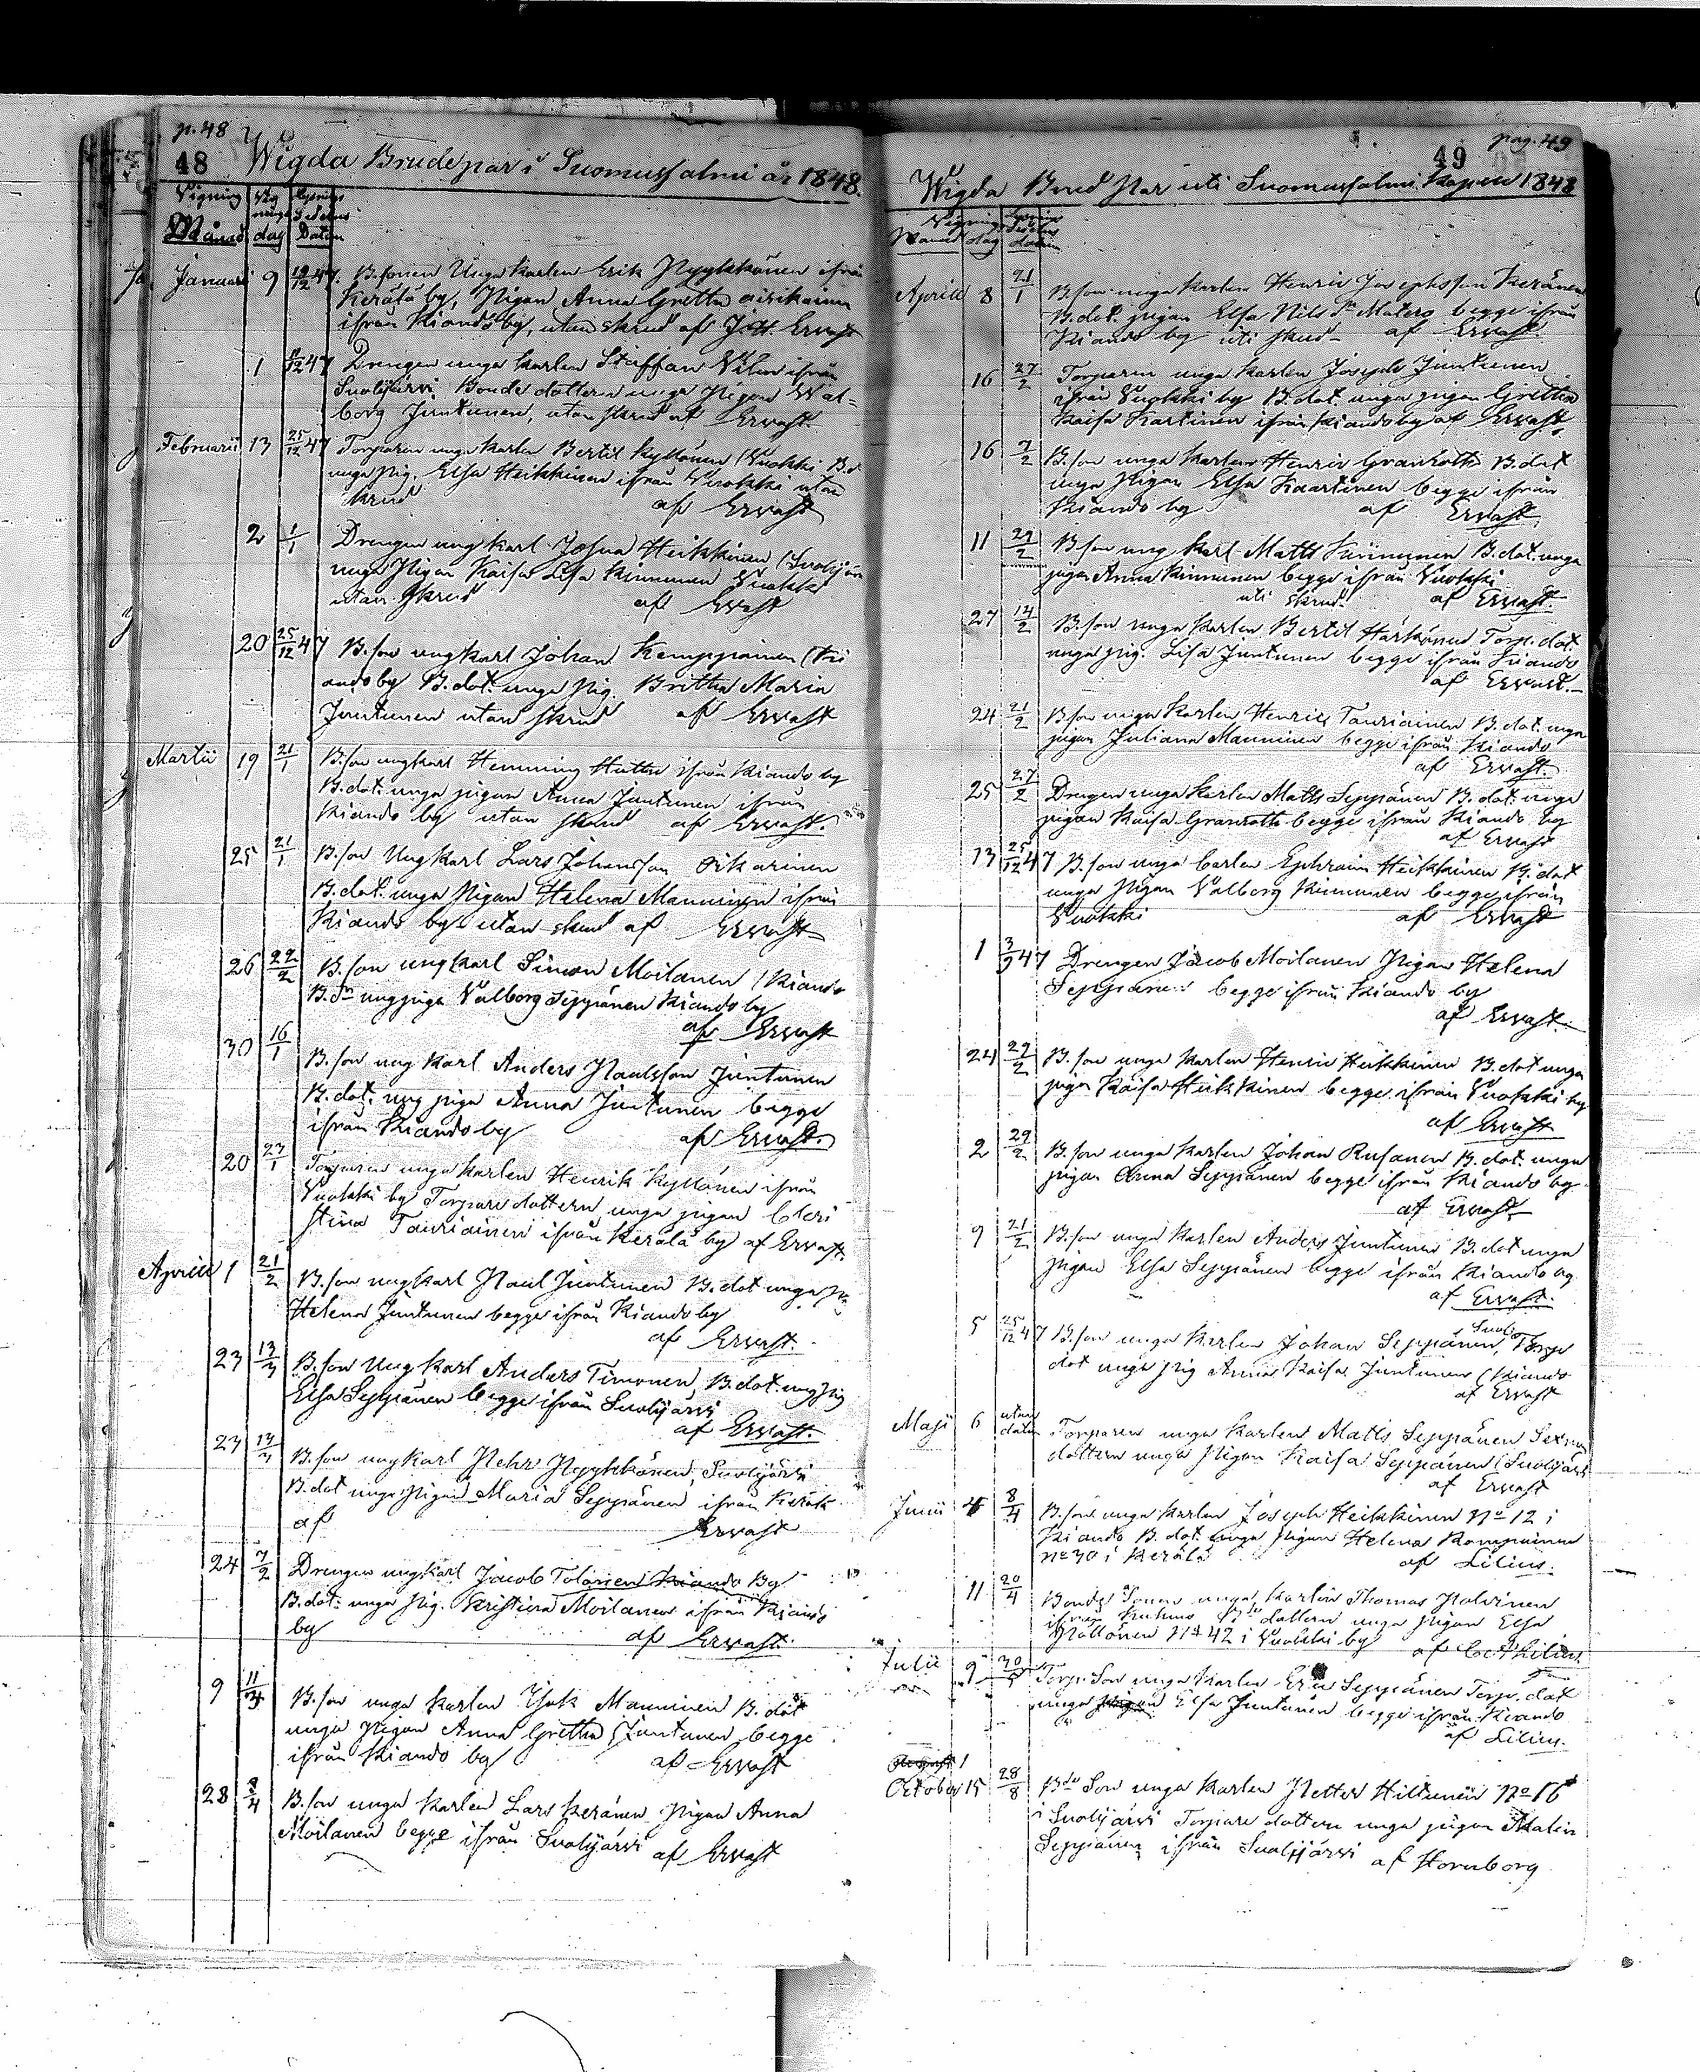 p. 48
48 Wigda Brudepar i Suomussalmi år 1848.
Vignings
Månad dag Datum
Januari 9 12 47. B.sonen Unga karlen Erik Pyykkönen ifrån
Kerälä by, Pigan Anna Gretha
ifrån Kiando by, utan skrud af Ervast
1 12 47 Drengen unga karlen Staffan ifrån
Suolijärvi Bonde dottern unga Pigan Wal-
borg Juntunen, utan skrud af Ervast.
Februarii 13 25/12 47 Torparen unga karlen Bertil Kyllönen (Vuokki B.d.
unga pig. Elsa Heikkinen ifrån Vuokki utan
skrud af Ervast
2 1/1 Drengen ung karl Josua Heikkinen (Suolijärvi
unga Pigan Kaisa Lisa Kinnunen Vuokki
utan skrud af Ervast
20 25/12 47 B.son ungkarl Johan Kemppainen (Ki
ando by B.dot. unga Pig. Britha Maria
Juntunen utan skrud af Ervast
Martii 19 21/1 B.son ungkarl Hemming Huttu ifrån Kiando by
B.dot. unga pigan Anna Juntunen ifrån
Kiando by utan skrud af Ervast.
25 21/1 B.son Ungkarl Lars Johansson Oikarinen
B.dot. unga Pigan Helena Manninen ifrån
Kiando by utan skrud af Ervast
26 22/2 B.son ungkarl Simon Moilanen (Kiando
B.dr ung piga Valborg Seppänen Kiando by
af Ervast
30 16/1 B.son ung karl Anders Paulsson Juntunen
B.dot. ung piga Anna Juntunen begge
ifrån Kiando by af Ervast.
20 23/1 Torparen unga karlen Henrik Kyllönen ifrån
Vuokki by Torpare dottern unga pigan Chri
stina Tauriainen ifrån Kerälä by af Ervast.
Aprill 1 21/2 B.son ungkarl Paul Juntunen B.dot unga pi.
Helena Juntunen begge ifrån Kiando by
af Ervast.
23 13/3 B.son Ungkarl Anders Timonen, B.dot. ung pig
Elsa Seppänen begge ifrån Suolijärvi
af Ervast.
23 13/3 B.son ungkarl Pehr Pyykkönen, Suolijärvi
B.dot unga Pigan Maria Seppänen ifrån Kerälä
af Ervast
24 7/2 Drengen ung karl Jacob Tolonen Kiando By
B.dot. unga Pig. Kristina Moilanen ifrån Kiando
by af Ervast.
9 B.son unga karlen Isak Manninen B.dot
unga Pigan Anna Gretha Juntunen begge
ifrån Kiando by af Ervast
28 8/4 B.son unga karlen Lars Keränen Pigan Anna
Moilanen begge ifrån Suolijärvi af Ervast
pag. 49
49
Wigda Brud Par uti Suomussalmi Kapell 1848
Vignings
Månad dag datum
Aprill 8 21/1 B.son unga karlen Henric Josephsson Keränen
B.dot. pigan Elsa Nils Dr Matero begge ifrån
Kiando by uti skrud - af Ervast.
16 27/2 Torparen unga karlen Joseph Juntunen
ifrån Vuokki by B.dot. unga pigan Gretha
Kaisa Kartinen ifrån Kiando by af Ervast.
16 7/2 B.son unga karlen Henric Granroth B.dot
unga Pigan Elsa Kaartinen begge ifrån
Kiando by af Ervast
11 29/2 B.son ung karl Matts Kinnunen B.dot. unga
pigan Anna Kinnunen begge ifrån Vuokki
uti skrud. af Ervast.
27 14/2 B.son unga karlen Bertil Härkönen Torp. dot.
unga pig. Lisa Juntunen begge ifrån Kiando
af Ervast.
24 21/2 B.son unga karlen Henric Tauriainen B.dot. unga
pigan Juliana Manninen begge ifrån Kiando
af Ervast.
25 27/2 Drengen unga karlen Matts Seppänen B.dot. unga
pigan Kaisa Granroth begge ifrån Kiando by
af Ervast
13 25/12 47 B.son unga carlen Ephraim Heikkinen B.dot
unga Pigan Valborg Kinnunen begge ifrån
Vuokki af Ervast
1 47 Drengen Jacob Moilanen Pigan Helena
Seppänen begge ifrån Kiando by
af Ervast.
24 22/2 B.son unga karlen Henric Heikkinen B.dot unga
piga Kaisa Heikkinen begge ifrån Vuokki by
af Ervast
2 29/2 B.son unga karlen Johan Rusanen B.dot. unga
pigan Anna Seppänen begge ifrån Kiando by
af Ervast
9 21/2 B.son unga karlen Anders Juntunen B.dot unga
Pigan Elsa Seppänen begge ifrån Kiando by
af Ervast.
5 25/12 47 B.son unga karlen Johan Seppänen, Suolij Torp
dot unga Pig Anna Kaisa Juntunen (Kiando
af Ervast
Maji 6 utan datum Torparen unga karlen Matts Seppänen
dottern unga Pigan Kaisa Seppänen (Suolijärvi
af Ervast
Junii 4 8/4 B.son unga karlen Joseph Heikkinen No 12 i
Kiando B.dot. unga Pigan Helena Kompainen
No 30 i Kerälä af Lilius.
11 20/4 Bonde Sonen unga karlen Thomas Polvinen
ifrån Kuhmo dottern unga Pigan Elsa
No 42 i Vuokki by af Lilius
Julii 9 30/5 Torp.Son unga karlen Eric Seppänen Torp. dot
unga Pigan Elsa Juntunen begge ifrån Kiando
af Lilius.
October 15 28/8 Bde Son unga karlen Petter Hiltunen No 16
i Suolijärvi Torpare dottern unga pigan Malin
Seppänen ifrån Suolijärvi af Hornborg